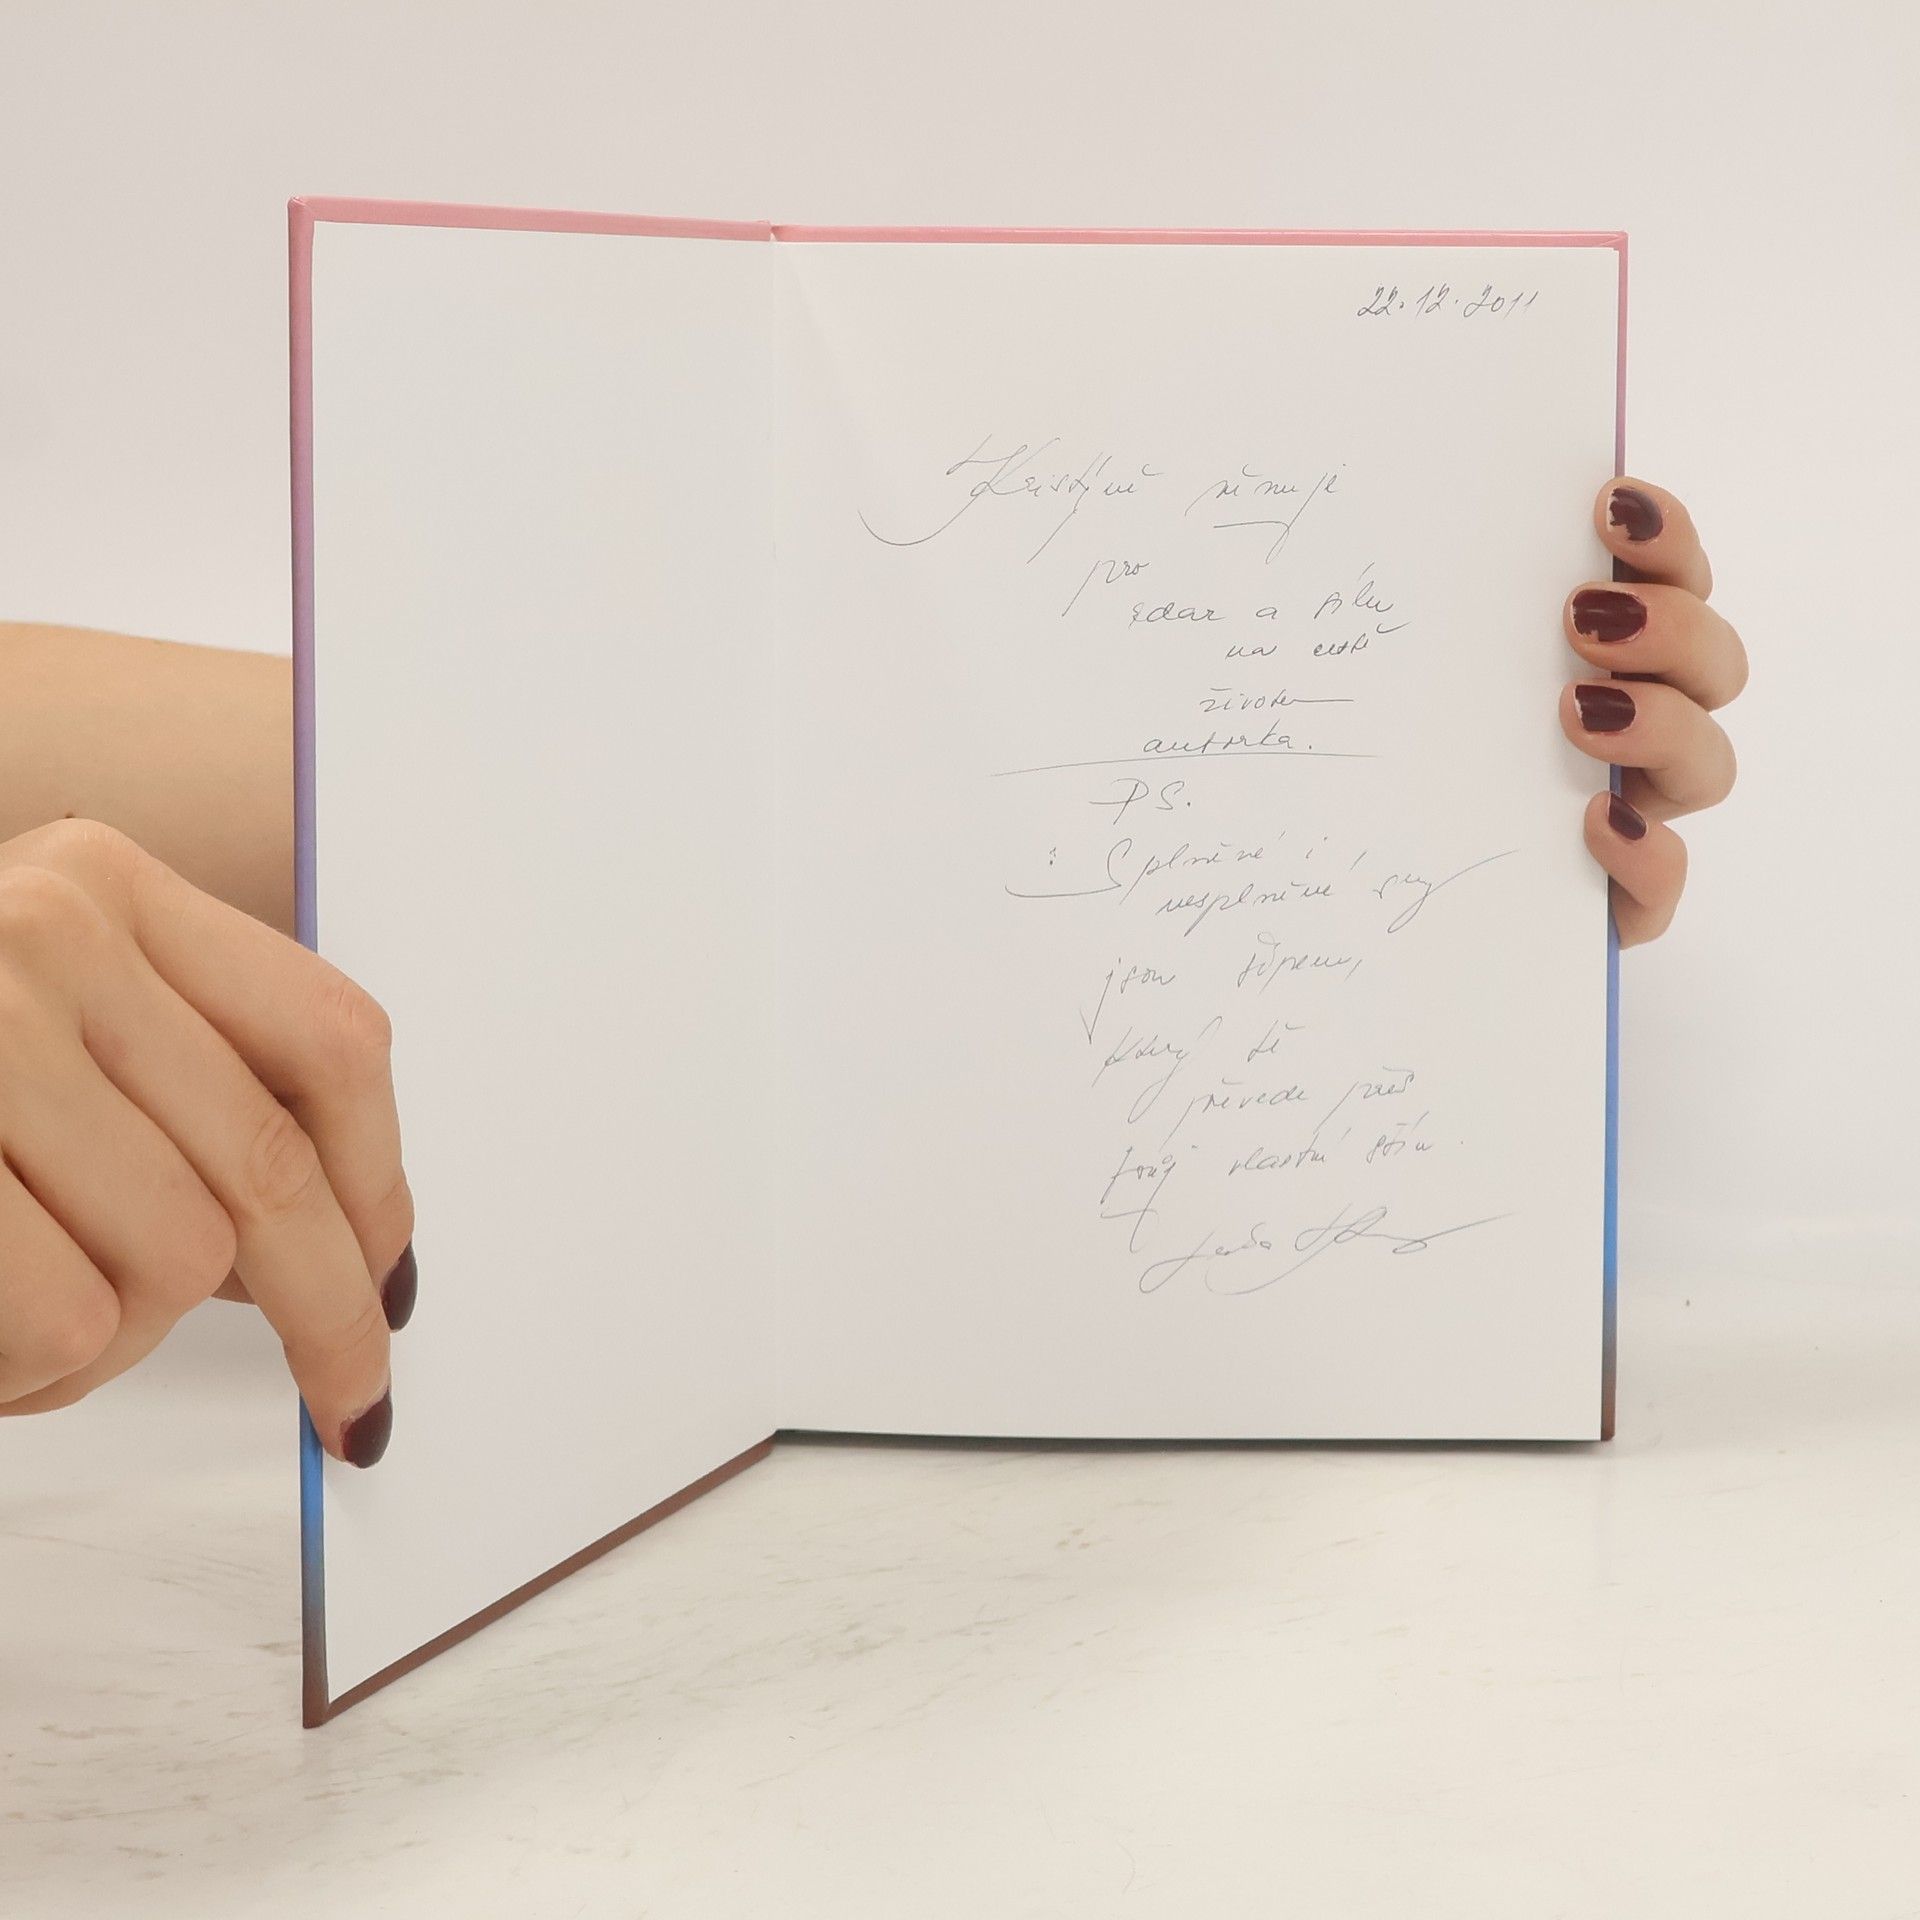 22.12.2011
Kristýně věnuje
pro
zdar a sílu
na cestě
životem
autorka.
PS.
: Splněné i
nesplněné sny
jsou šípem,
který tě
převede přes
tvůj vlastní stín.